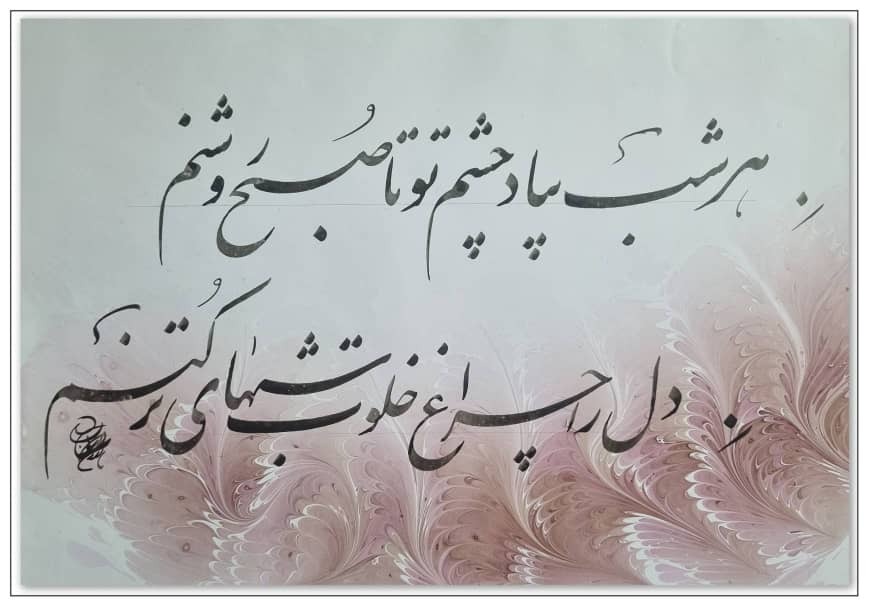 هر شب بیاد چشم تو تا صُبح روشنم
دل را چراغ خلوت شبهای تر کُنم